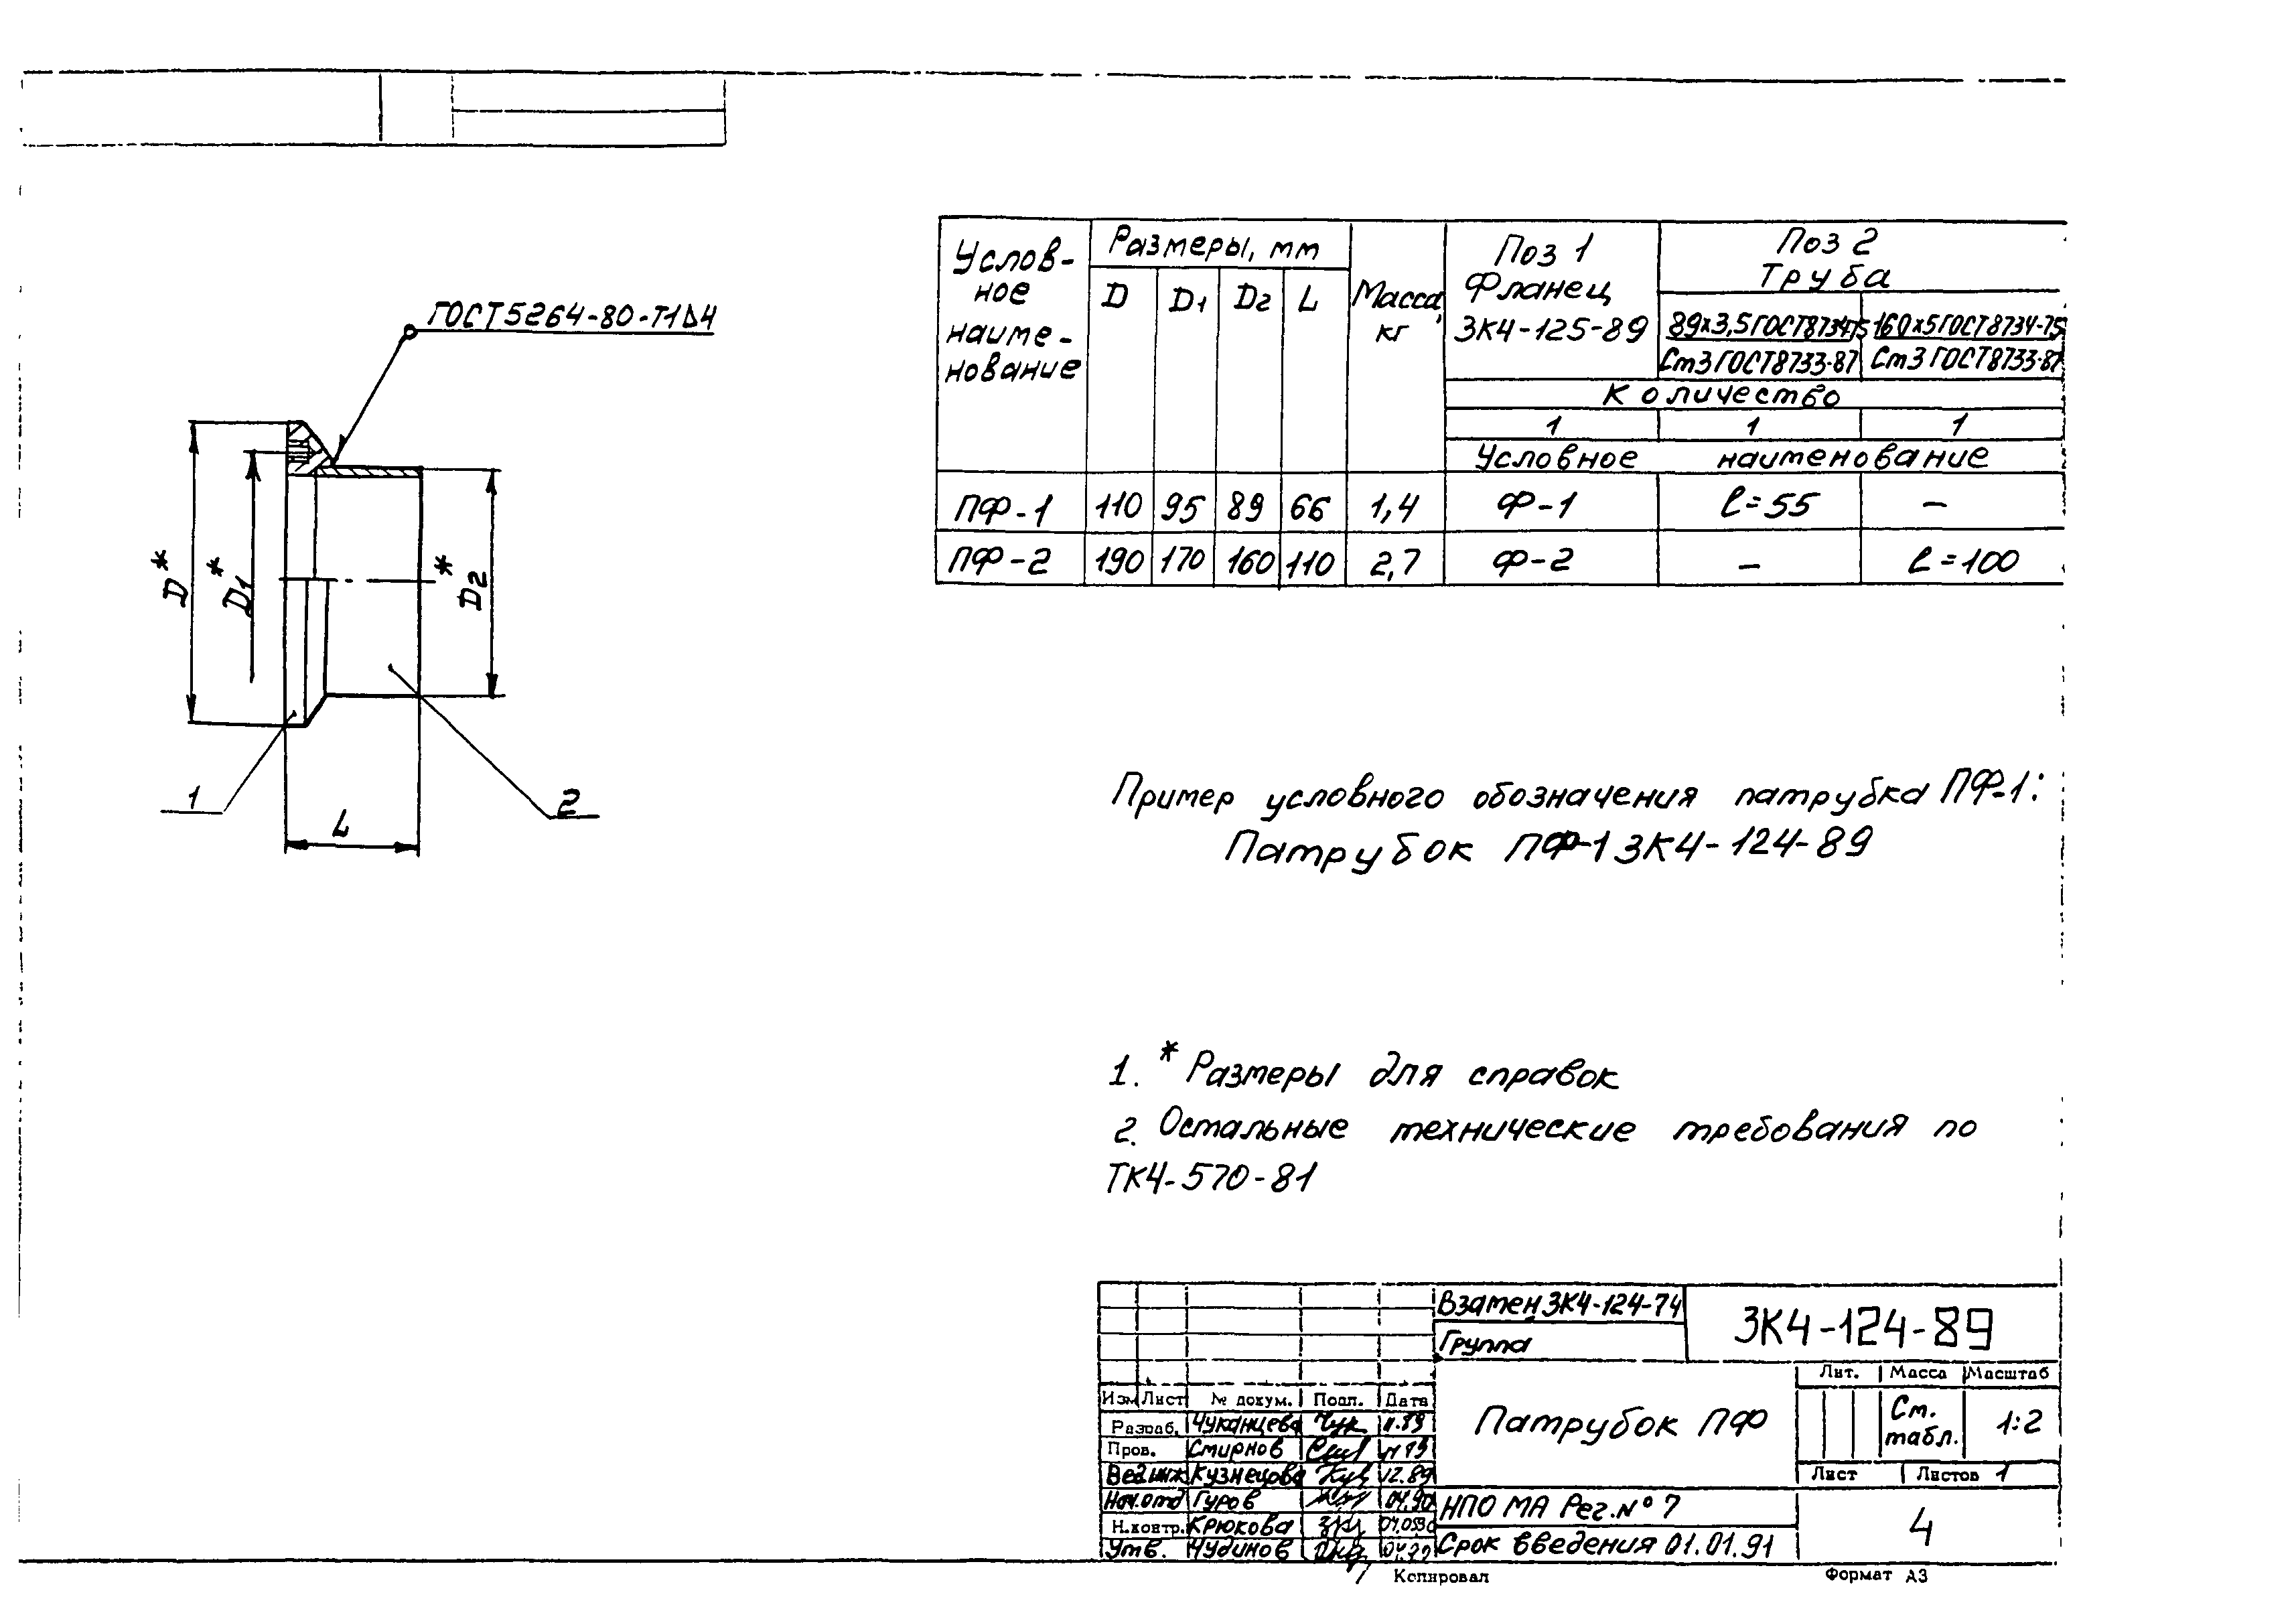 ГОСТ5264-80-Т1Δ4
D*
D1*
D2*
1
2
L
Услов-
ное
наиме-
нование
Размеры, мм
D
D1
D2
L
Масса,
кг
Поз 1
Фланец
ЗК4-125-89
Поз 2
Труба
89х3,5ГОСТ8734-75
Ст3ГОСТ8733-87
160х5ГОСТ8734-75
Ст3ГОСТ8733-87
Количество
1 1 1
Условное наименование
ПФ-1 110 95 89 66 1,4 Ф-1 ℓ=55 –
ПФ-2 190 170 160 110 2,7 Ф-2 – ℓ=100
Пример условного обозначения патрубка ПФ-1:
Патрубок ПФ-1 ЗК4-124-89
1. * Размеры для справок
2. Остальные технические требования по
ТК4-570-81
Взамен ЗК4-124-74
Группа
ЗК4-124-89
Изм Лист № докум. Подп. Дата
Разраб. Чуканцева 11.89
Пров. Смирнов
Вед инж Кузнецова 12.89
Нач.отд Гуров 04.90
Н.контр. Крюкова
Утв. Чудинов
Патрубок ПФ
Лит. Масса Масштаб
См.
табл.
1:2
Лист Листов 1
НПО МА Рег.№ 7
Срок введения 01.01.91
4
Копировал
Формат А3